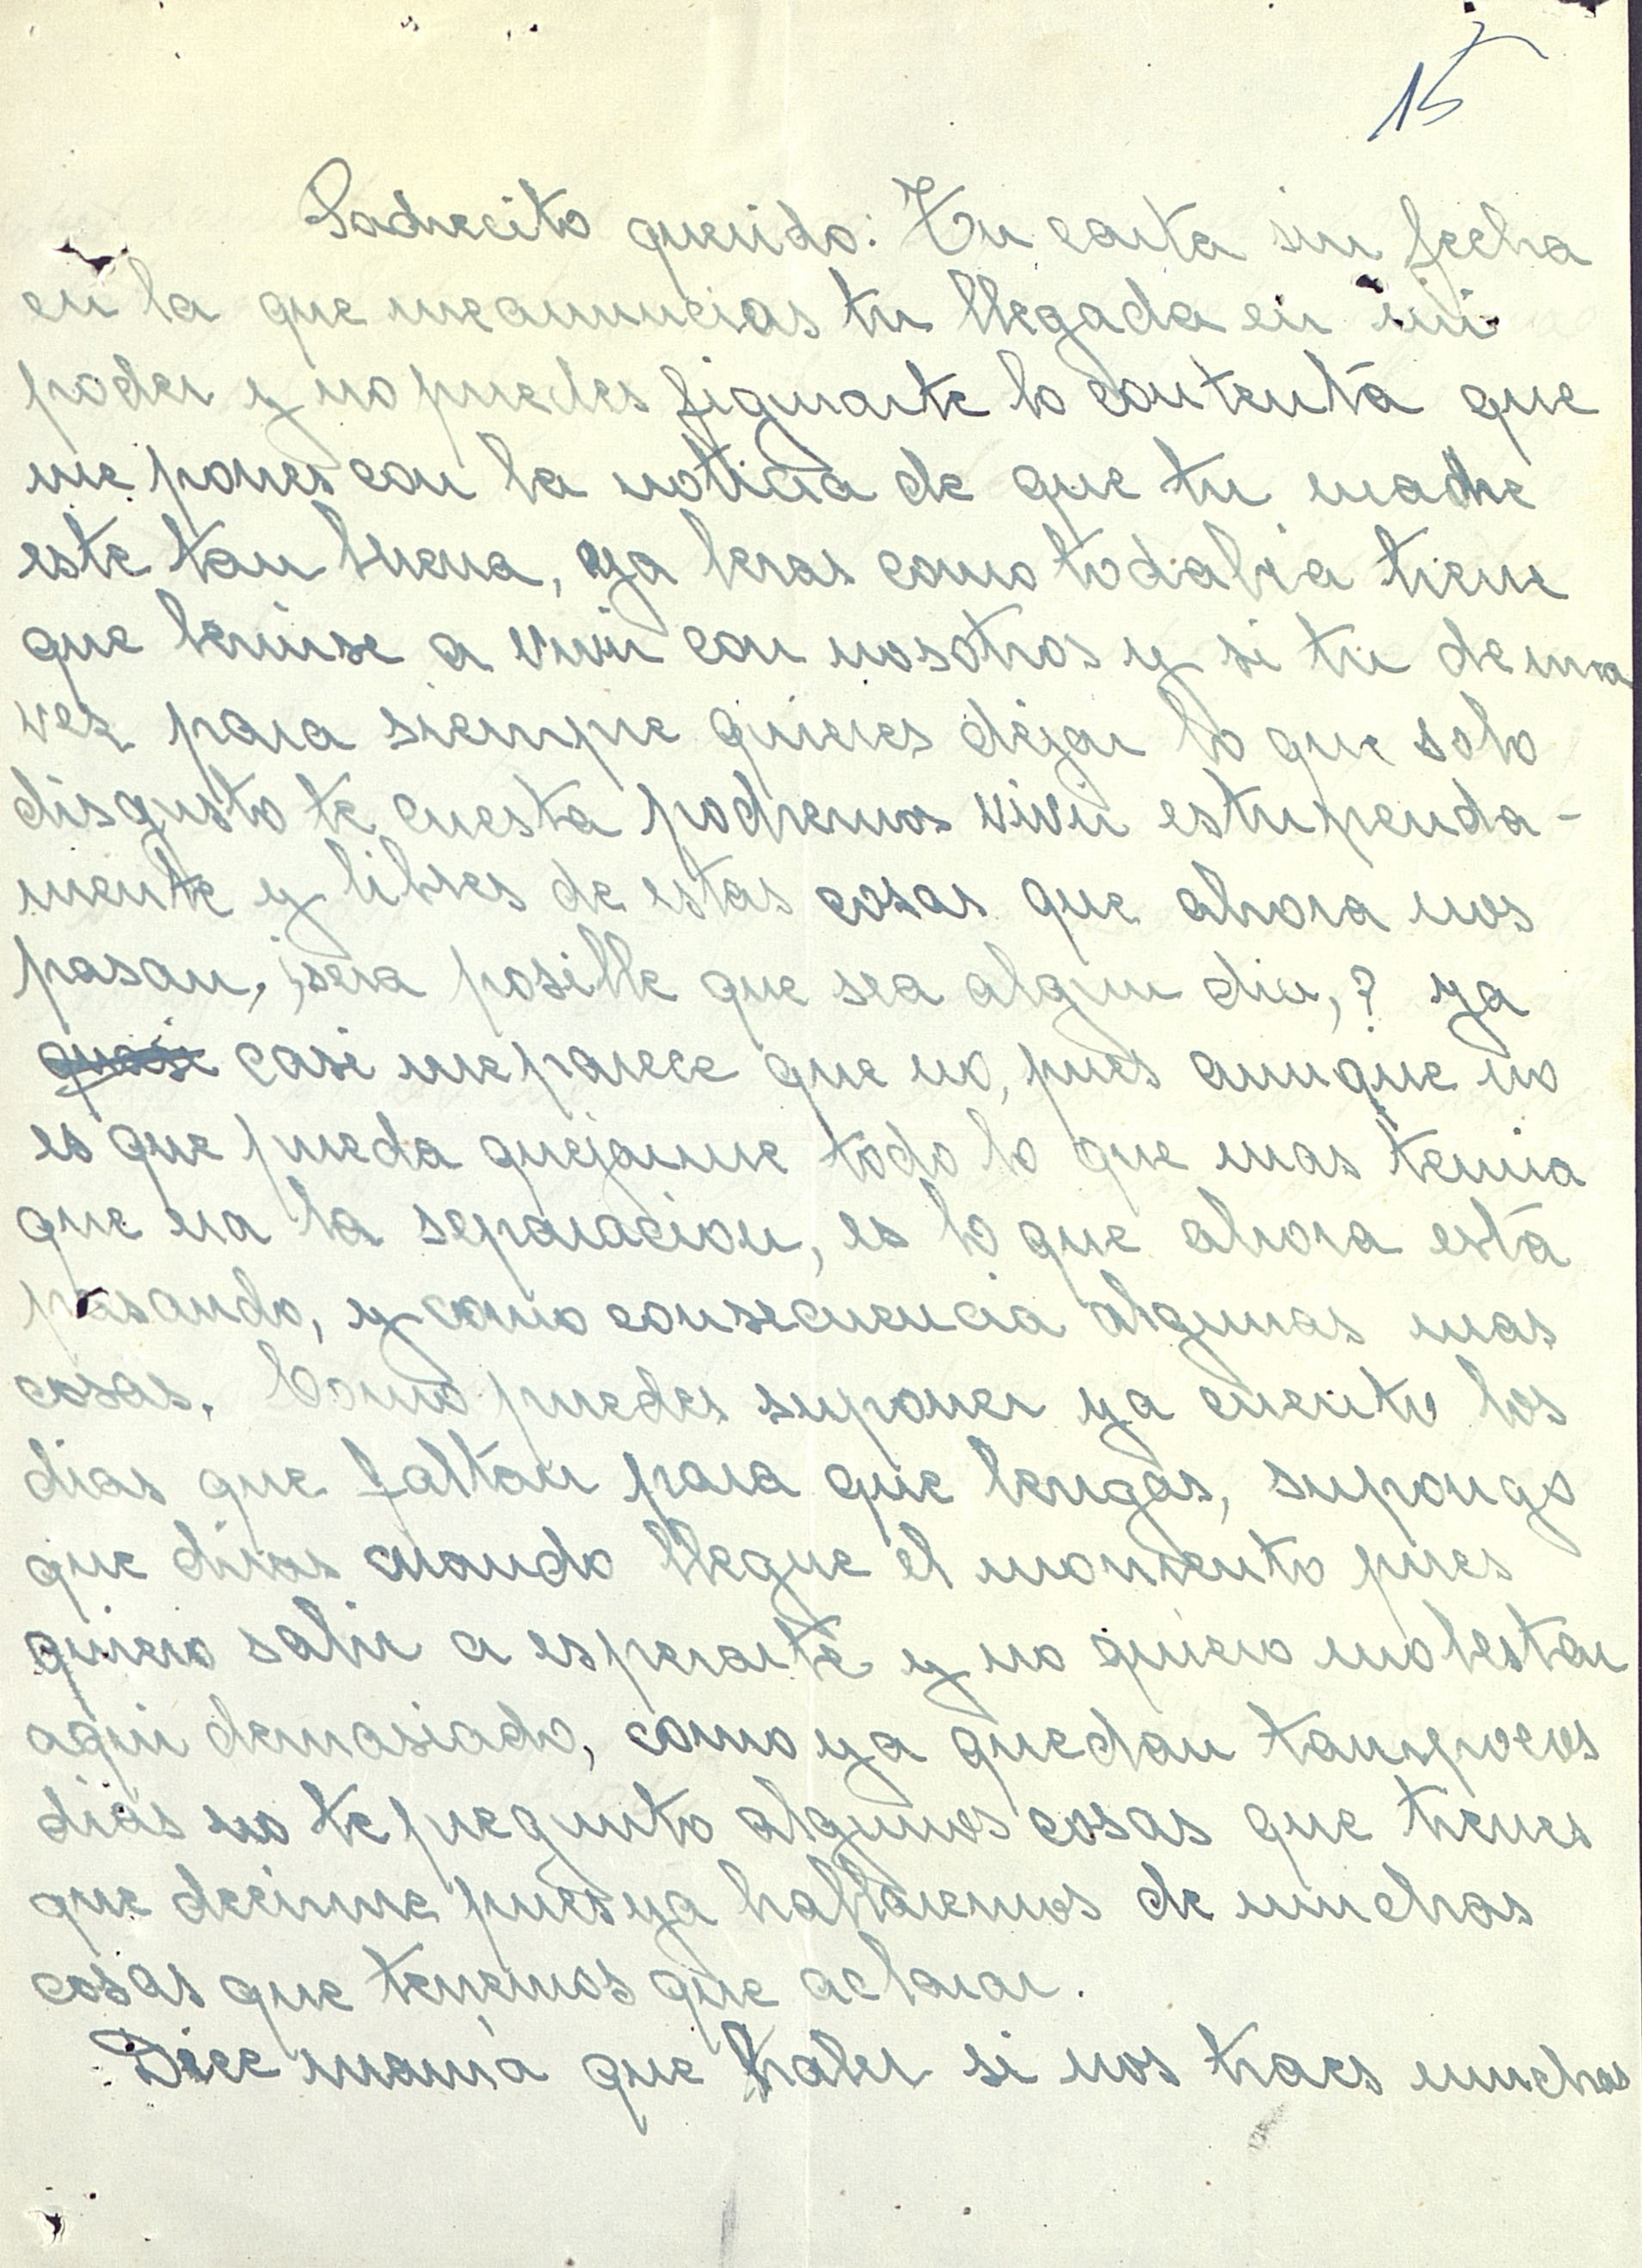 15
Padrecito querido: Tu carta sin fecha
en la que meanuncias tu llegada en mi
poder y no puedes figurarte lo contenta que
me pones con la noticia de que tu madre
este tan buena, ya beras como todabia tiene
que benirse a vivir con nosotros y si tu de una
vez para siempre quieres dejar lo que solo
disgusto te cuesta podremos vivir estupenda-
mente y libres de estas cosas que ahora nos
pasan, ¿sera posible que sea algun dia,? ya
quasi casi meparece que no, pues aunque no
es que pueda quejarme todo lo que mas temia
que era la separacion, es lo que ahora está
pasando, y como consecuencia algunas mas
cosas. Como puedes suponer ya cuento los
dias que faltan para que bengas, supongo
que diras cuando llegue el momento pues
quiero salir a esperarte y no quiero molestar
aqui demasiado, como ya quedan tanspocos
dias no te pregunto algunos cosas que tienes
que decirme pues ya hablaremos de muchas
cosas que tenemos que aclarar.
Dice mamá que haber si nos traes muchas